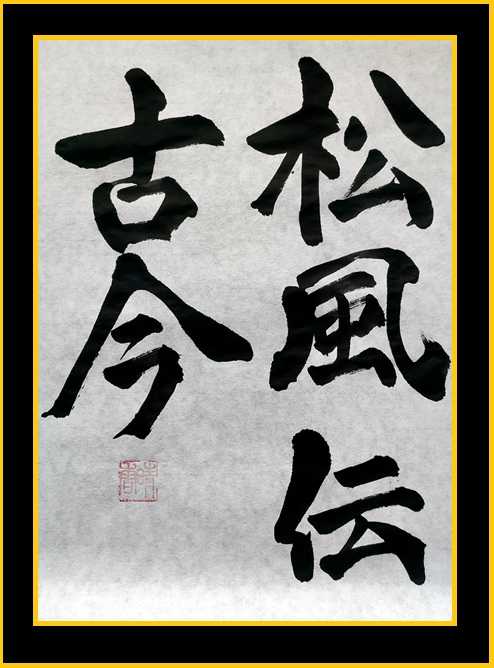 松風伝
古今